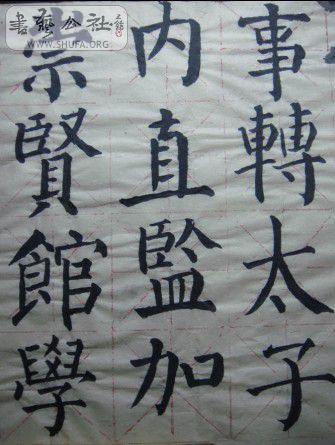 書藝公社
WWW.SHUFA.ORG
事轉太子
内直監加
崇賢館學